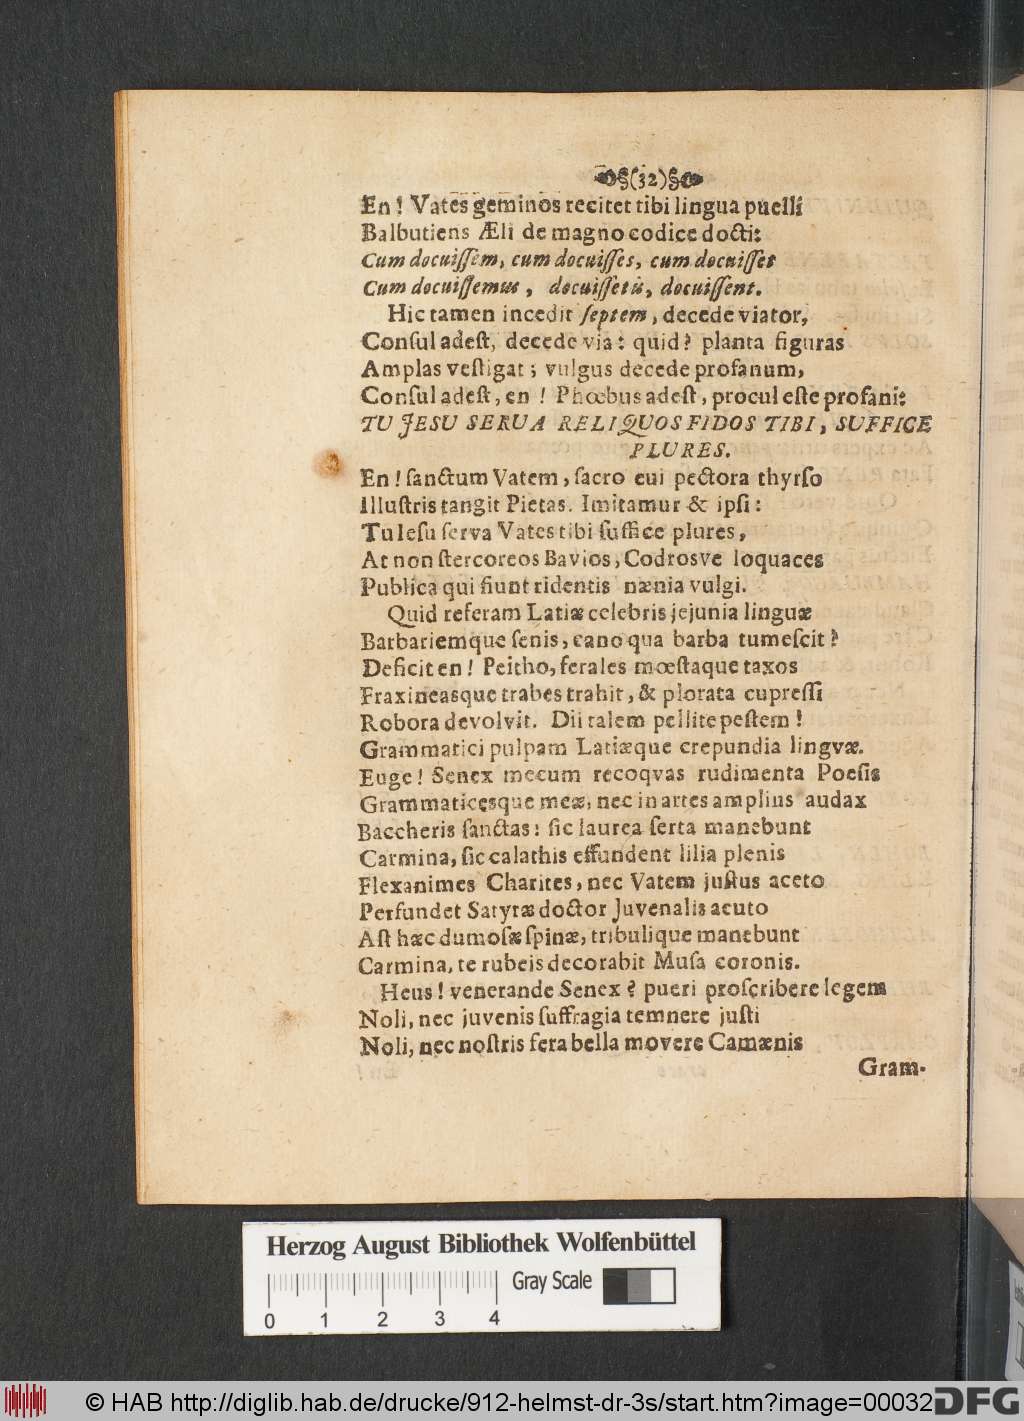 §(32)§
En! Vates geminos recitet tibi lingua puelli
Balbutiens Æli de magno codice docti:
Cum docuiſſem, cum docuiſſes, cum docuiſſet
Cum docuiſſemus, docuiſſetis, docuiſſent.
Hic tamen incedit ſeptem, decede viator,
Conſul adeſt, decede via: quid? planta figuras
Amplas veſtigat; vulgus decede profanum,
Conſul adeſt, en! Phœbus adeſt, procul eſte profani:
TU JESU SERUA RELIQUOS FIDOS TIBI, SUFFICE
PLURES.
En! ſanctum Vatem, ſacro cui pectora thyrſo
Illuſtris tangit Pietas. Imitamur & ipſi:
Tu Ieſu ſerva Vates tibi ſuffice plures,
At non ſtercoreos Bavios, Codrosve loquaces
Publica qui fiunt ridentis nænia vulgi.
Quid referam Latiæ celebris jejunia linguæ
Barbariemque ſenis, cano qua barba tumeſcit?
Deficit en! Peitho, ferales mœſtaque taxos
Fraxineasque trabes trahit, & plorata cupreſſi
Robora devolvit. Dii talem pellite peſtem!
Grammatici pulpam Latiæque crepundia lingvæ.
Euge! Senex mecum recoqvas rudimenta Poeſis
Grammaticesque meæ, nec in artes amplius audax
Baccheris ſanctas: ſic laurea ſerta manebunt
Carmina, ſic calathis effundent lilia plenis
Flexanimes Charites, nec Vatem juſtus aceto
Perfundet Satyræ doctor Juvenalis acuto
Aſt hæc dumoſæ ſpinæ, tribulique manebunt
Carmina, te rubeis decorabit Muſa coronis.
Heus! venerande Senex? pueri proſcribere legem
Noli, nec juvenis ſuffragia temnere juſti
Noli, nec noſtris fera bella movere Camænis
Gram-
Herzog August Bibliothek Wolfenbüttel
Gray Scale
0 1 2 3 4
© HAB http://diglib.hab.de/drucke/912-helmst-dr-3s/start.htm?image=00032
DFG